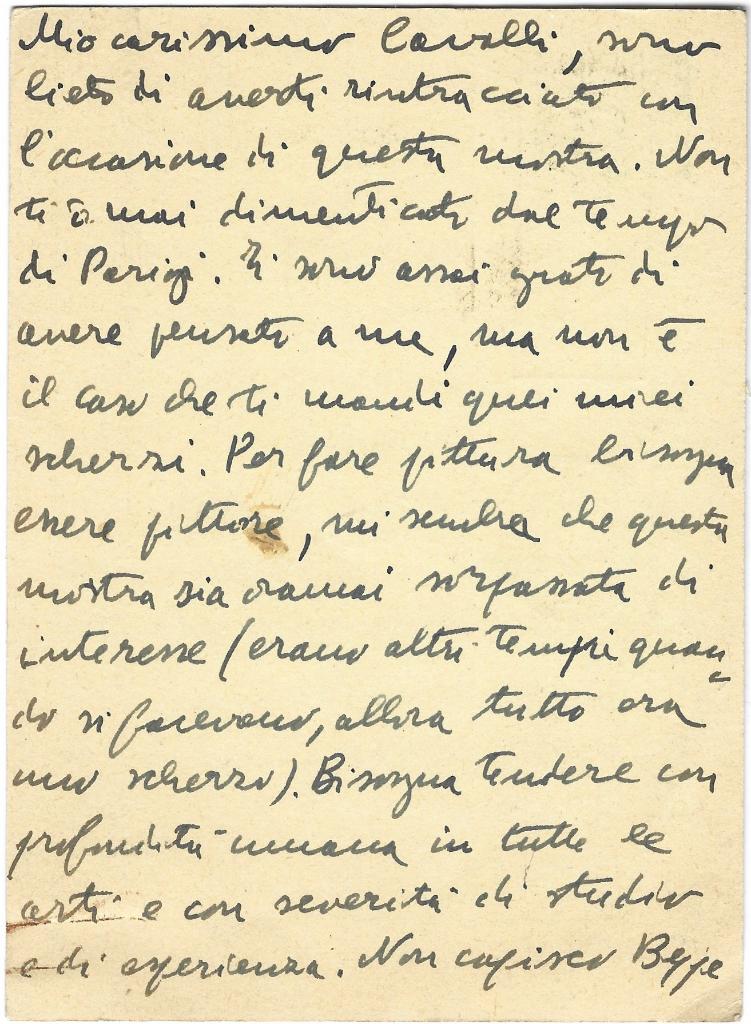 Mio carissimo Cavalli, sono
lieto di averti rintracciato con
l'occasione di questa mostra. Non
ti ò mai dimenticato dal tempo
di Parigi. Ti sono assai grato di
avere pensato a me, ma non è
il caso che ti mandi quei miei
scherzi. Per fare pittura bisogna
essere pittore, mi sembra che questa
mostra sia oramai sorpassata di
interesse (erano altri tempi quan-
do si facevano, allora tutto era
uno scherzo). Bisogna tendere con
profondità umana in tutte le
arti e con severità di studio
e di esperienza. Non capisco Beppe